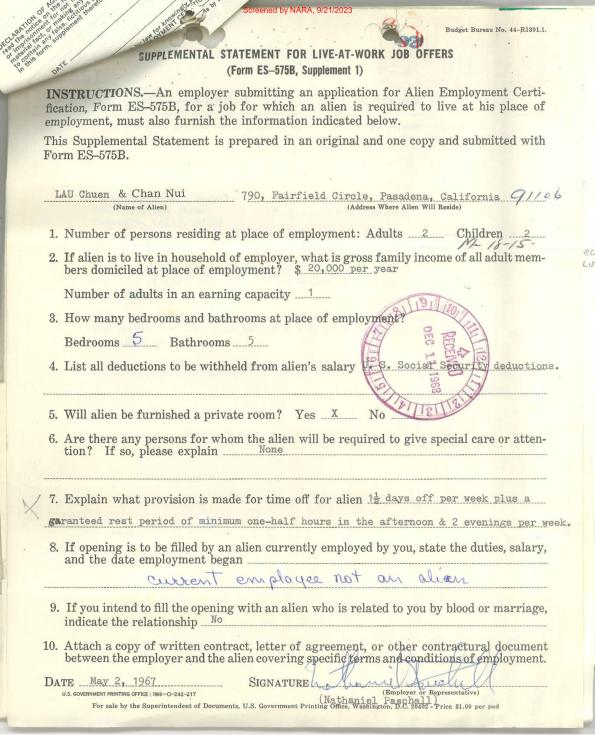 Screened by NARA, 9/21/2023
Budget Bureau No. 44-R1301.1.
SUPPLEMENTAL STATEMENT FOR LIVE-AT-WORK JOB OFFERS
(Form ES-575B, Supplement 1)
INSTRUCTIONS.—An employer submitting an application for Alien Employment Certi-
fication, Form ES-575B, for a job for which an alien is required to live at his place of
employment, must also furnish the information indicated below.
This Supplemental Statement is prepared in an original and one copy and submitted with
Form ES-575B.
LAU Chuen & Chan Nui 790, Fairfield Circle, Pasadena, California 91106
(Name of Alien) (Address Where Alien Will Reside)
1. Number of persons residing at place of employment: Adults 2 Children 2
18-15
2. If alien is to live in household of employer, what is gross family income of all adult mem-
bers domiciled at place of employment? $ 20,000 per year
Number of adults in an earning capacity 1
3. How many bedrooms and bathrooms at place of employment?
Bedrooms 5 Bathrooms 5
4. List all deductions to be withheld from alien's salary U. S. Social Security deductions.
RECEIVED
DEC 11 1968
5. Will alien be furnished a private room? Yes X No
6. Are there any persons for whom the alien will be required to give special care or atten-
tion? If so, please explain None
X 7. Explain what provision is made for time off for alien 1½ days off per week plus a
garanteed rest period of minimum one-half hours in the afternoon & 2 evenings per week.
8. If opening is to be filled by an alien currently employed by you, state the duties, salary,
and the date employment began
current employee not an alien
9. If you intend to fill the opening with an alien who is related to you by blood or marriage,
indicate the relationship No
10. Attach a copy of written contract, letter of agreement, or other contractural document
between the employer and the alien covering specific terms and conditions of employment.
DATE May 2, 1967 SIGNATURE Nathaniel Paschall
(Employer or Representative)
(Nathaniel Paschall)
U.S. GOVERNMENT PRINTING OFFICE : 1966—O-242-217
For sale by the Superintendent of Documents, U.S. Government Printing Office, Washington, D.C. 20402 - Price $1.00 per pad